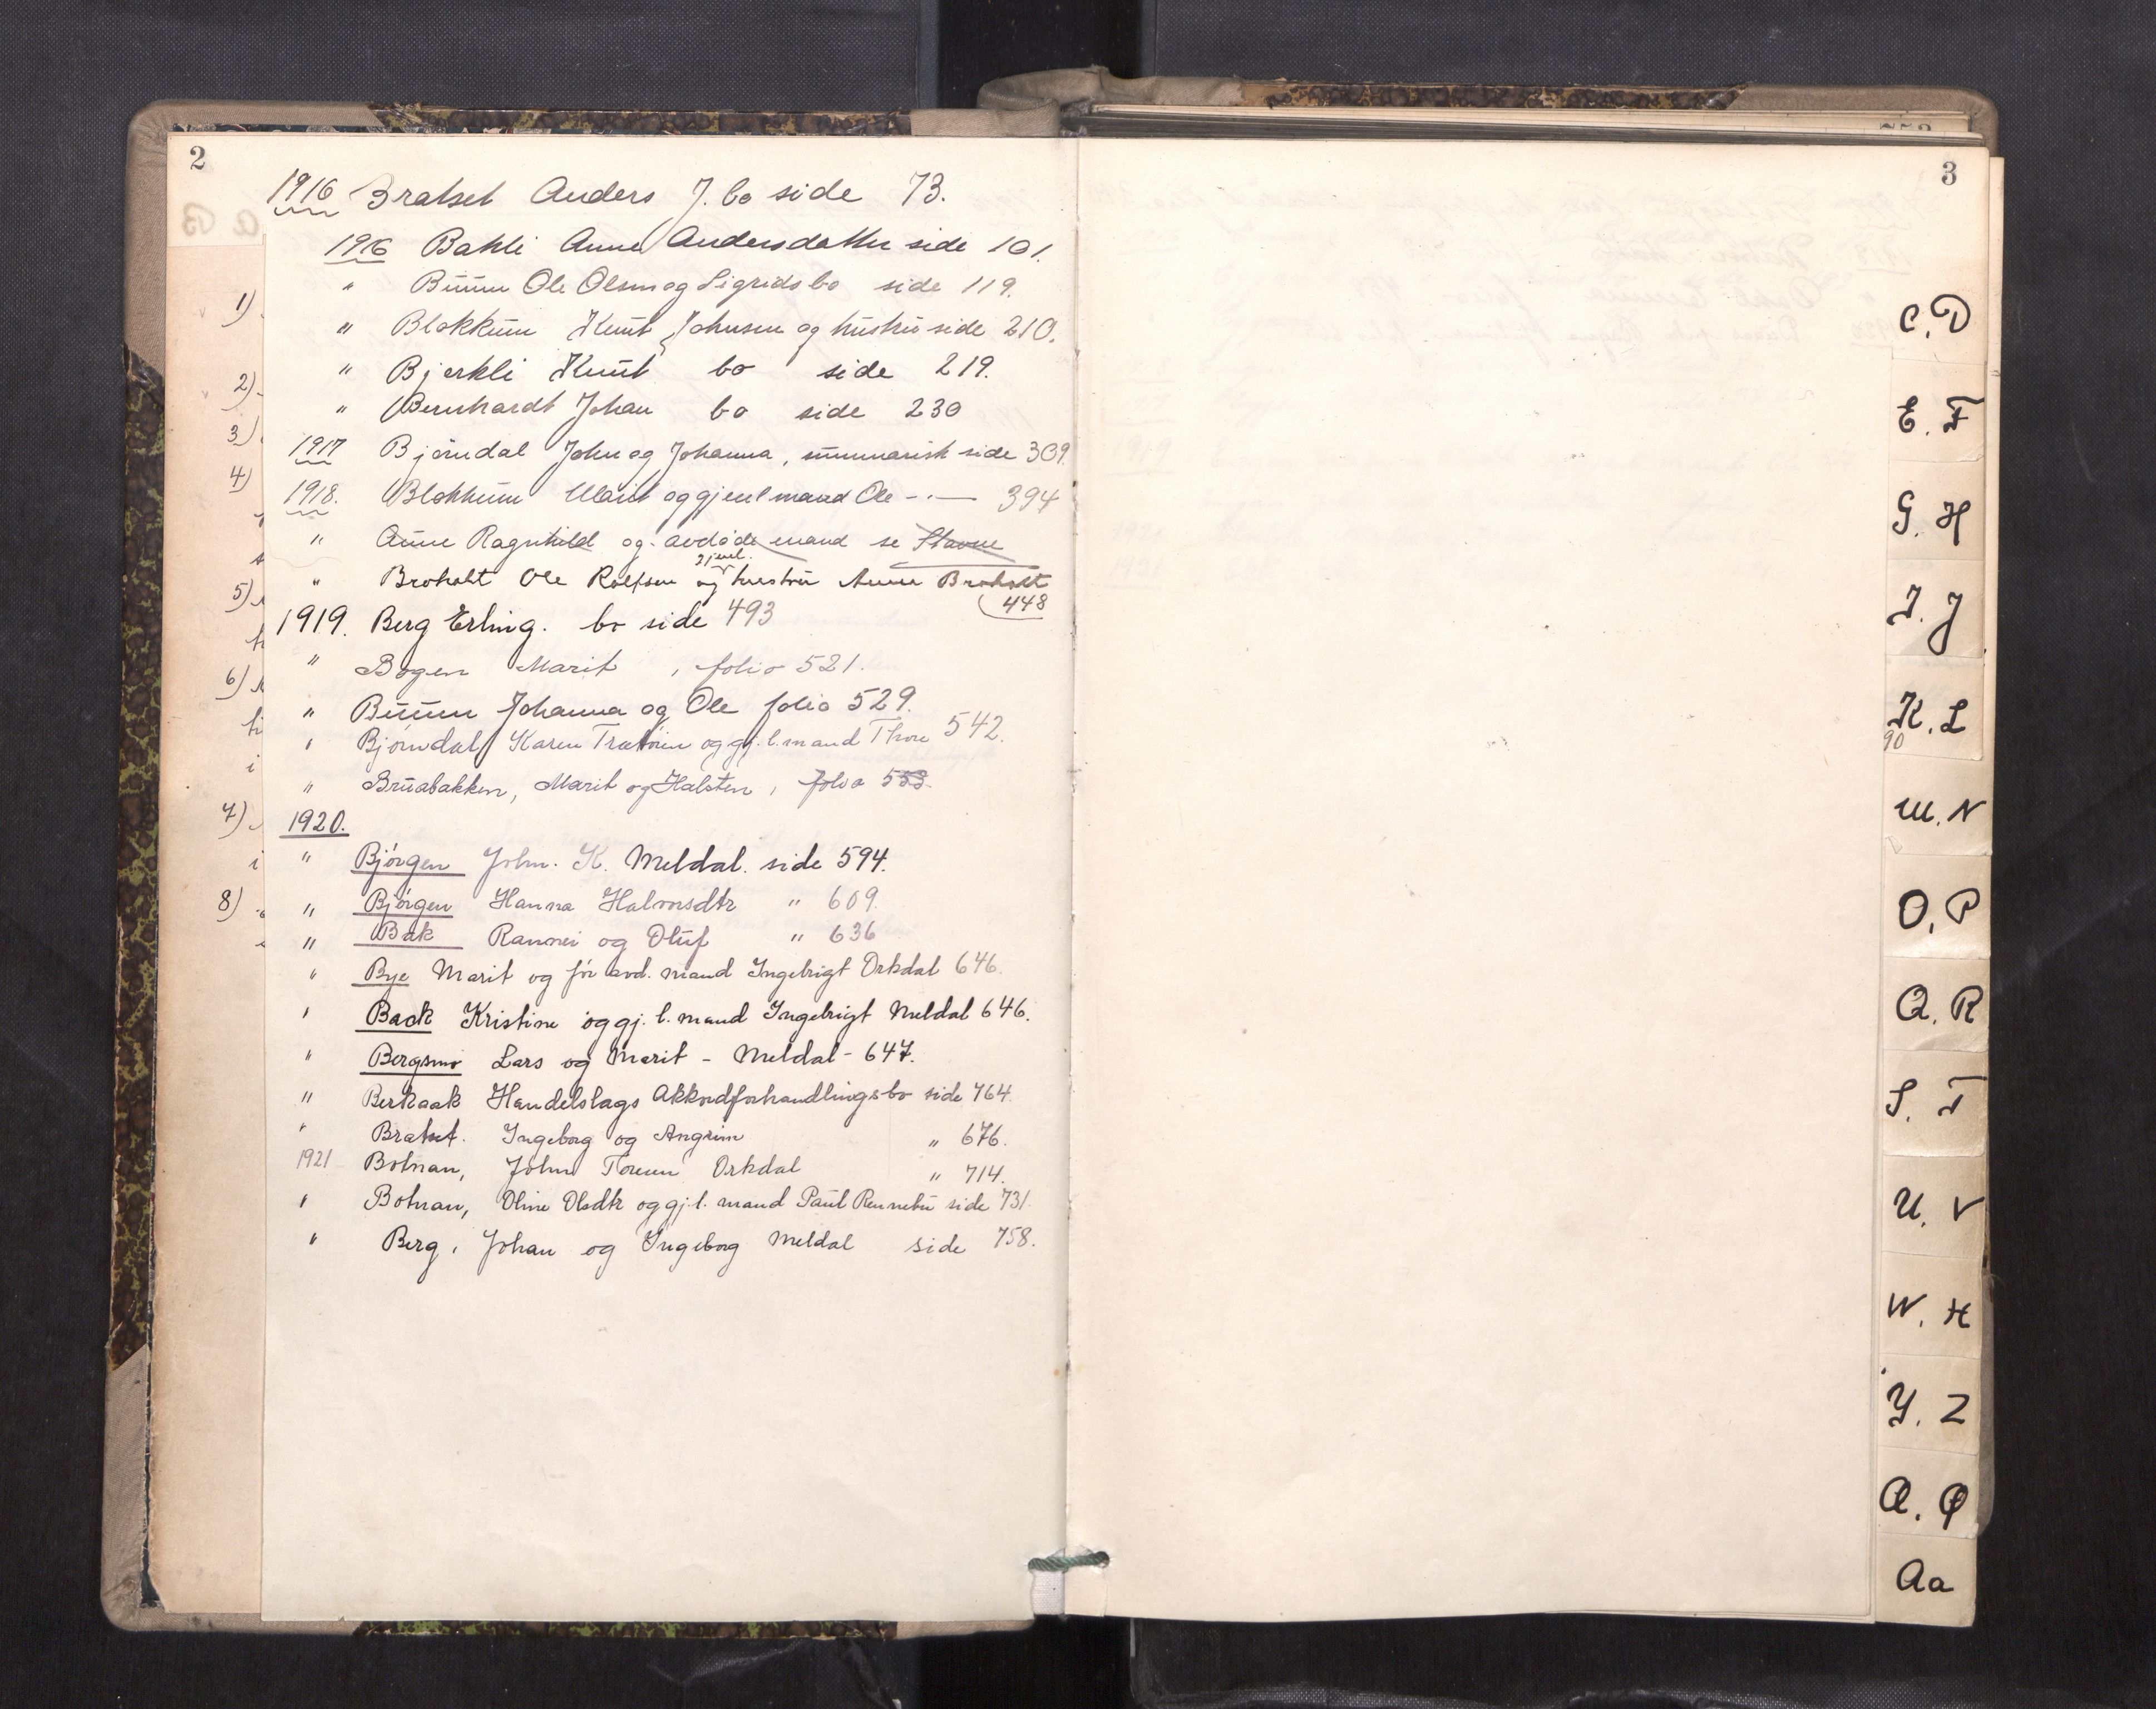 2
1916 Bratset Anders J. bo side 73.
1916 Bakli Anne Andersdatter side 101.
" Buum Ole Olsen og Sigrids bo side 119.
" Blokkum Knut Johnsen og hustru side 210.
" Bjerkli Knut bo side 219.
" Bernhardt Johan bo side 230
1917 Bjørndal John og Johanna, summarisk side 309
1918. Blokkum Marit og gjenl mand Ole -.- 394
" Anne Ragnhild og avdøde mand se Stavne
gjenl.
" Broholt Ole Rolfsen og hustru Anne Broholt
448
1919. Berg Erling. bo side 493
" Bogen Marit, folio 521.
" Buum Johanna og Ole folio 529.
" Bjørndal Karen og gj. l. mand Thore 542.
" Bruabakken, Marit og Halsten, folio 553.
1920.
" Bjørgen John. K. Meldal. side 594.
" Bjørgen Hanna Halvorsdtr " 609.
" Bak Rannei og Oluf " 636
" Bye Marit og før avd. mand Ingebrigt Orkdal 646.
" Back Kristine og gj. l. mand Ingebrigt Meldal 646.
" Bergsmo Lars og Marit - Meldal - 647.
" Berkaak Handelslags Akkordforhandlingsbo side 764.
" Bratset. Ingeborg og Angrim " 676.
1921 Botnan, John Orkdal " 714.
" Botnan, Oline Olsdtr og gj. l. mand Paul Rennebu side 731
" Berg, Johan og Ingeborg Meldal side 758.
1)
2)
3)
4)
5)
6)
7)
8)
3
C. D
E. F
G. H
I. J
K. L
90
M. N
O. P
Q. R
S. T
U. V
W. X
Y. Z
Æ. Ø
Aa